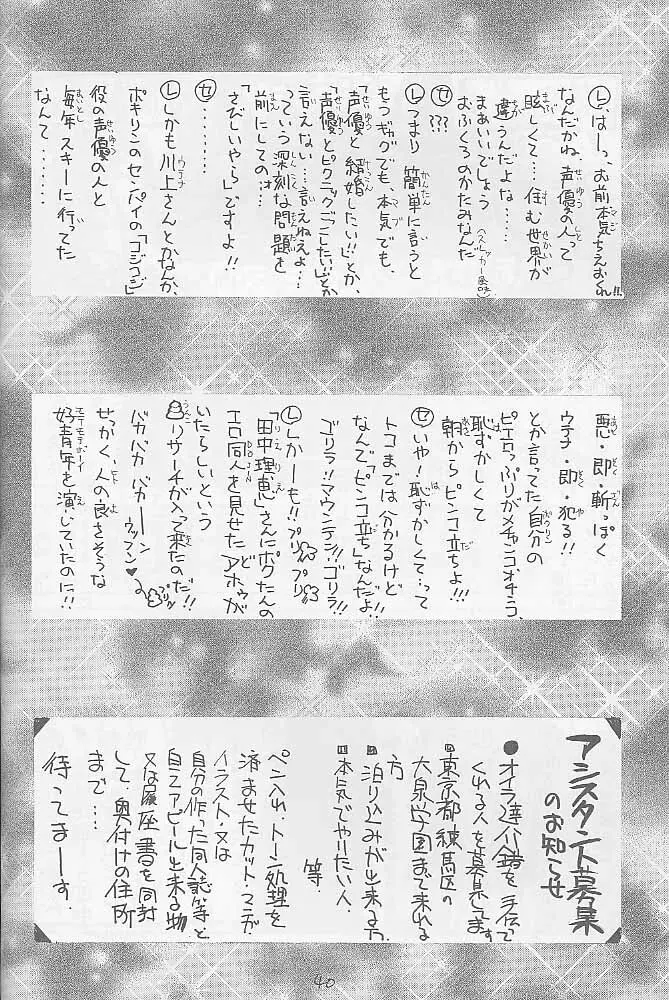 Ⓛはーっ、お前本気ちえおくれ!!
なんだかね、声優の人って
眩しくて…住む世界が
違うんだよな……
まあいいでしょう
おふくろのかたみなんだ
Ⓩ???
Ⓛつまり簡単に言うと
もつギグでも、本気でも、
「声優と結婚したい!!」とか、
「声優とピクニックごこしたい!!」とか
言えない…言えねえよ…
っていう深刻な問題を
前にしての、オ…
「さびしいやら」ですよ!!
Ⓩ・・・・・・
Ⓛしかも川上さんとかなんか、
ポキリンのセンパイの「コジコジ」
役の声優の人と
毎年スキーに行ってた
なんて……
悪・即・斬っぽく
ウ子・即・犯る!!
とか言ってた自分の
ピエロっぷりがメチャンコオチコう、
恥ずかしくて
朝からピンコ立ちよ!!!
Ⓩいや!恥ずかしくて…って
トコまでは分かるけど
なんで「ピンコ立ち」なんだよ!!
ゴリラ!!マウンテン!!ゴリラ!!
Ⓛしかーも!!プリプリ
「田中理恵」さんにポクたんの
エロ同人を見せたアホゥが
いたらしいという
リサーチが入って来たのだ!!
バカバカバカーン
ウッフン♥
せっかく、人の良さそうな
好青年を演じていたのに!!
アシスタント募集
のお知らせ
●オイラ達を手伝って
くれる人を募集してます
■東京都練馬区の
大泉学園まで来れる
方
■泊り込みが出来る方
■本気でやりたい人、
等
ペン入れ、トーン処理を
済ませたカット・
イラスト・又は
自分の作った同人誌等と
自己アピール出来る物
又は履歴書を同封
して、奥付けの住所
まで…
待ってまーす。
40